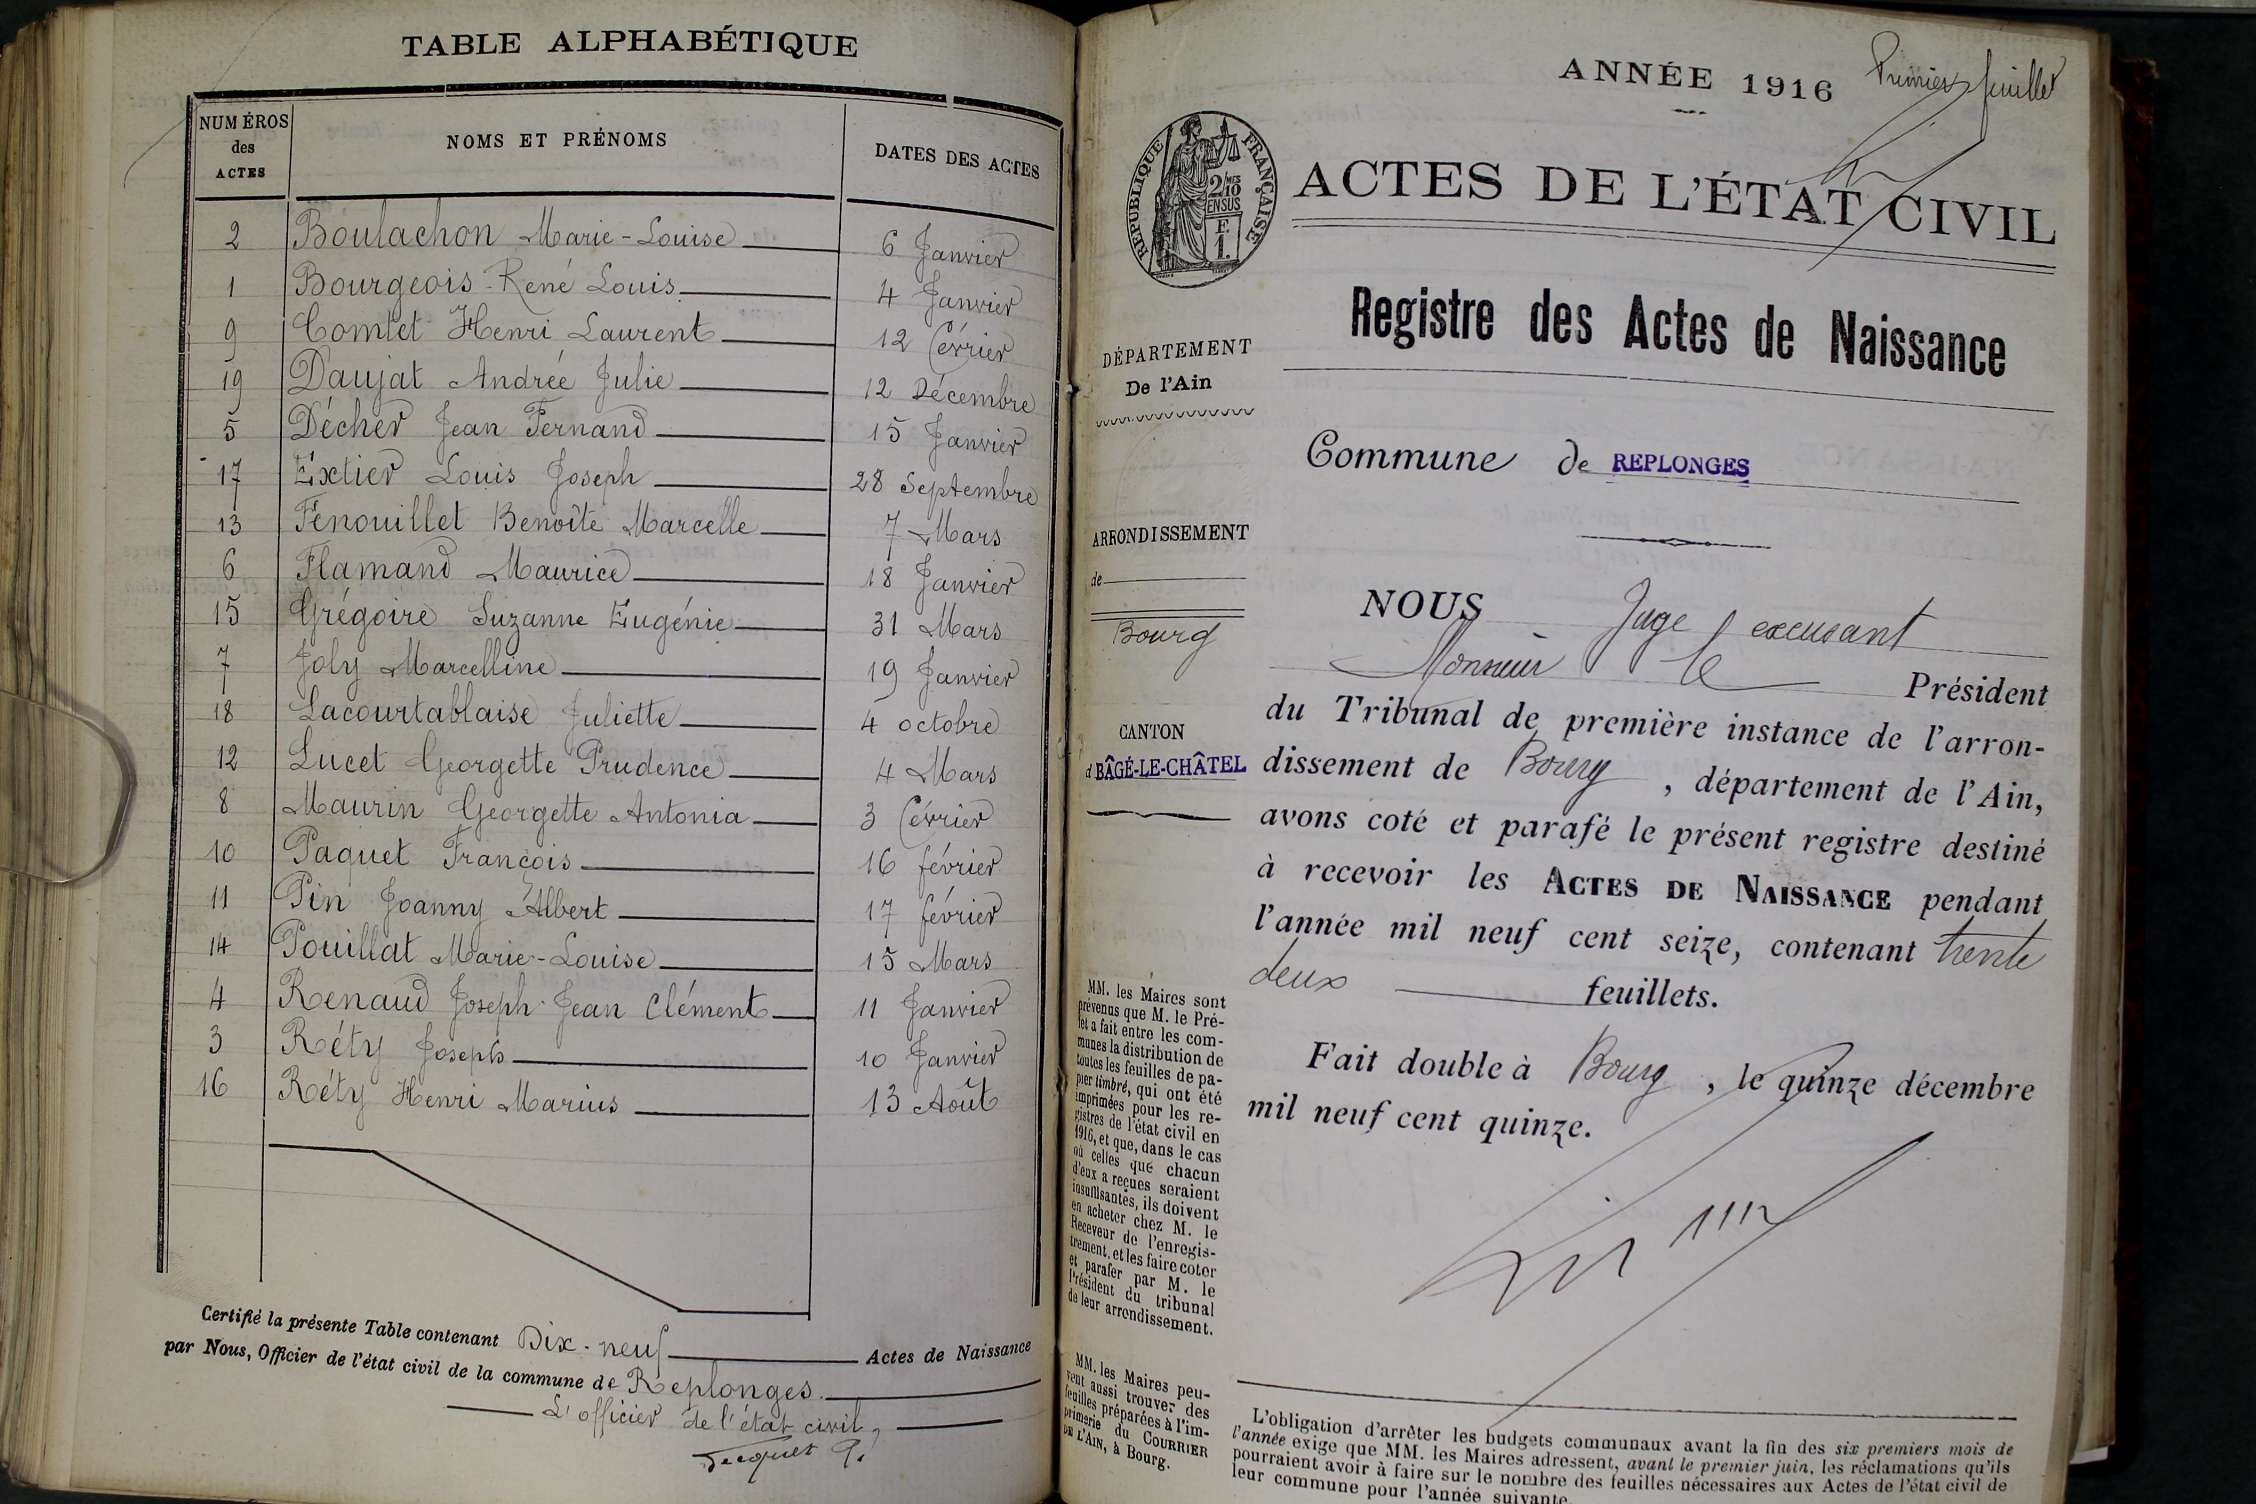 TABLE ALPHABÉTIQUE
NUMÉROS des ACTES NOMS ET PRÉNOMS DATES DES ACTES
2 Boulachon Marie-Louise 6 Janvier
1 Bourgeois René Louis 4 Janvier
9 Comtet Henri Laurent 12 Février
19 Daujat Andrée Julie 12 Décembre
5 Décher Jean Fernand 15 Janvier
17 Extier Louis Joseph 28 Septembre
13 Fenouillet Benoîte Marcelle 7 Mars
6 Flamand Maurice 18 Janvier
15 Grégoire Suzanne Eugénie 31 Mars
7 Joly Marcelline 19 Janvier
18 Lacourtablaise Juliette 4 octobre
12 Lucet Georgette Prudence 4 Mars
8 Maurin Georgette Antonia 3 Février
10 Paquet François 16 février
11 Pin Joanny Albert 17 février
14 Pouillat Marie-Louise 15 Mars
4 Renaud Joseph Jean Clément 11 Janvier
3 Réty Joseph 10 Janvier
16 Réty Henri Marius 13 Août
Certifié la présente Table contenant Dix-neuf Actes de Naissance
par Nous, Officier de l'état civil de la commune de Replonges.
L'officier de l'état civil,
ANNÉE 1916
Premier feuillet
RÉPUBLIQUE FRANÇAISE
2/10 MES
EN SUS
E
1.
ACTES DE L'ÉTAT CIVIL
Registre des Actes de Naissance
DÉPARTEMENT
De l'Ain
Commune de REPLONGES
ARRONDISSEMENT
de
Bourg
CANTON
d BÂGÉ-LE-CHÂTEL
NOUS Juge excusant
Monsieur le Président
du Tribunal de première instance de l'arron-
dissement de Bourg, département de l'Ain,
avons coté et parafé le présent registre destiné
à recevoir les ACTES DE NAISSANCE pendant
l'année mil neuf cent seize, contenant trente
deux feuillets.
Fait double à Bourg, le quinze décembre
mil neuf cent quinze.
MM. les Maires sont
prévenus que M. le Pré-
fet a fait entre les com-
munes la distribution de
toutes les feuilles de pa-
pier timbré, qui ont été
imprimées pour les re-
gistres de l'état civil en
1916, et que, dans le cas
où celles que chacun
d'eux a reçues seraient
insuffisantes, ils doivent
en acheter chez M. le
Receveur de l'enregis-
trement, et les faire coter
et parafer par M. le
Président du tribunal
de leur arrondissement.
MM. les Maires peu-
vent aussi trouver des
feuilles préparées à l'im-
primerie du COURRIER
DE L'AIN, à Bourg.
L'obligation d'arrêter les budgets communaux avant la fin des six premiers mois de
l'année exige que MM. les Maires adressent, avant le premier juin, les réclamations qu'ils
pourraient avoir à faire sur le nombre des feuilles nécessaires aux Actes de l'état civil de
leur commune pour l'année suivante.